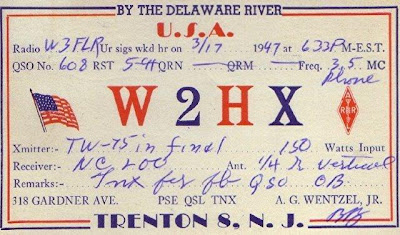 BY THE DELAWARE RIVER
U. S. A.
Radio W3FLR Ur sigs wkd hr on 3/17 1947 at 633 PM-E.S.T.
QSO No. 608 RST 594 QRN QRM Freq. 3.5 MC
phone
W 2 H X
ARRL
Xmitter:- TW-75 in final 150 Watts Input
Receiver:- NC 200 Ant. 1/4 λ vertical
Remarks:- Tnx fer fb QSO OB
318 GARDNER AVE. PSE QSL TNX A. G. WENTZEL, JR.
TRENTON 8, N. J.